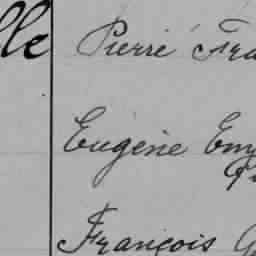 lle Pierre Fra
Eugène Em
François G